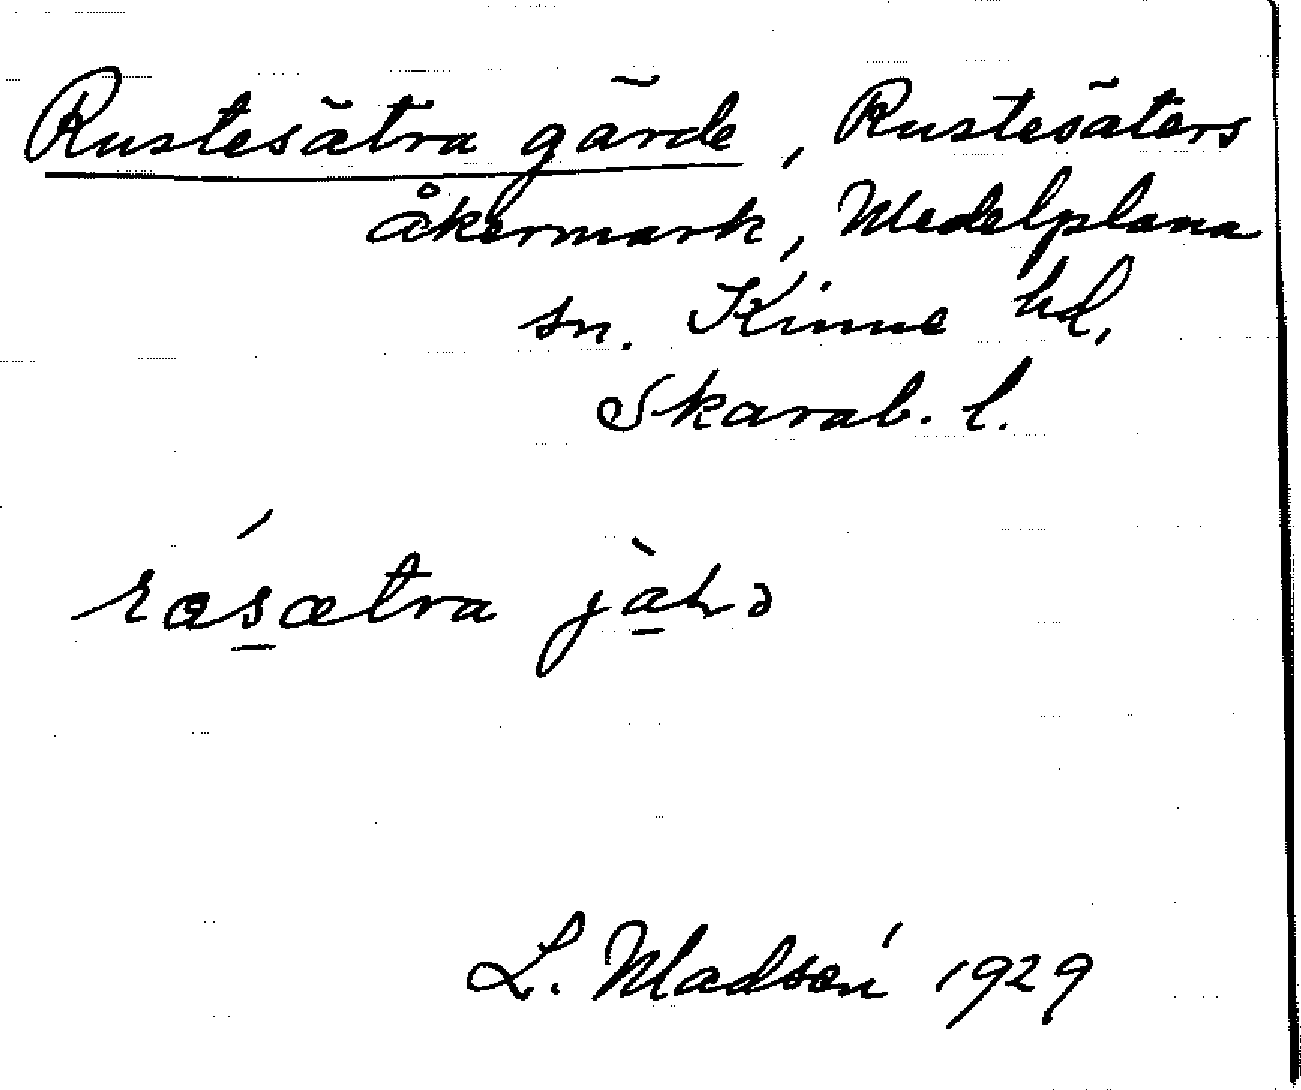 Rustesätra gärde, Rustesäters
åkermark, Medelplana
sn. Kinne hd,
Skarab. l.
L. Madsén 1929